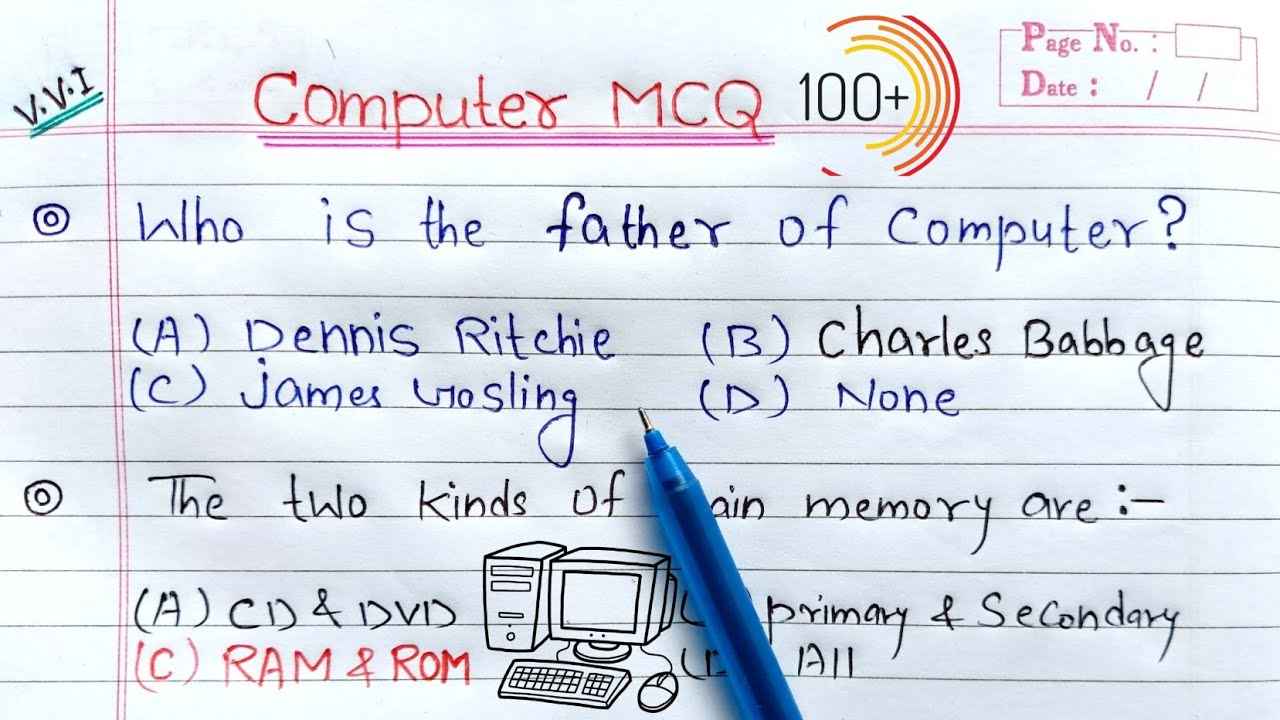 V.V.I
Computer MCQ 100+
Page No. :
Date : / /
Who is the father of Computer?
(A) Dennis Ritchie (B) Charles Babbage
(C) James Gosling (D) None
The two kinds of ain memory are :-
(A) CD & DVD ) primary & Secondary
(C) RAM & ROM (D All